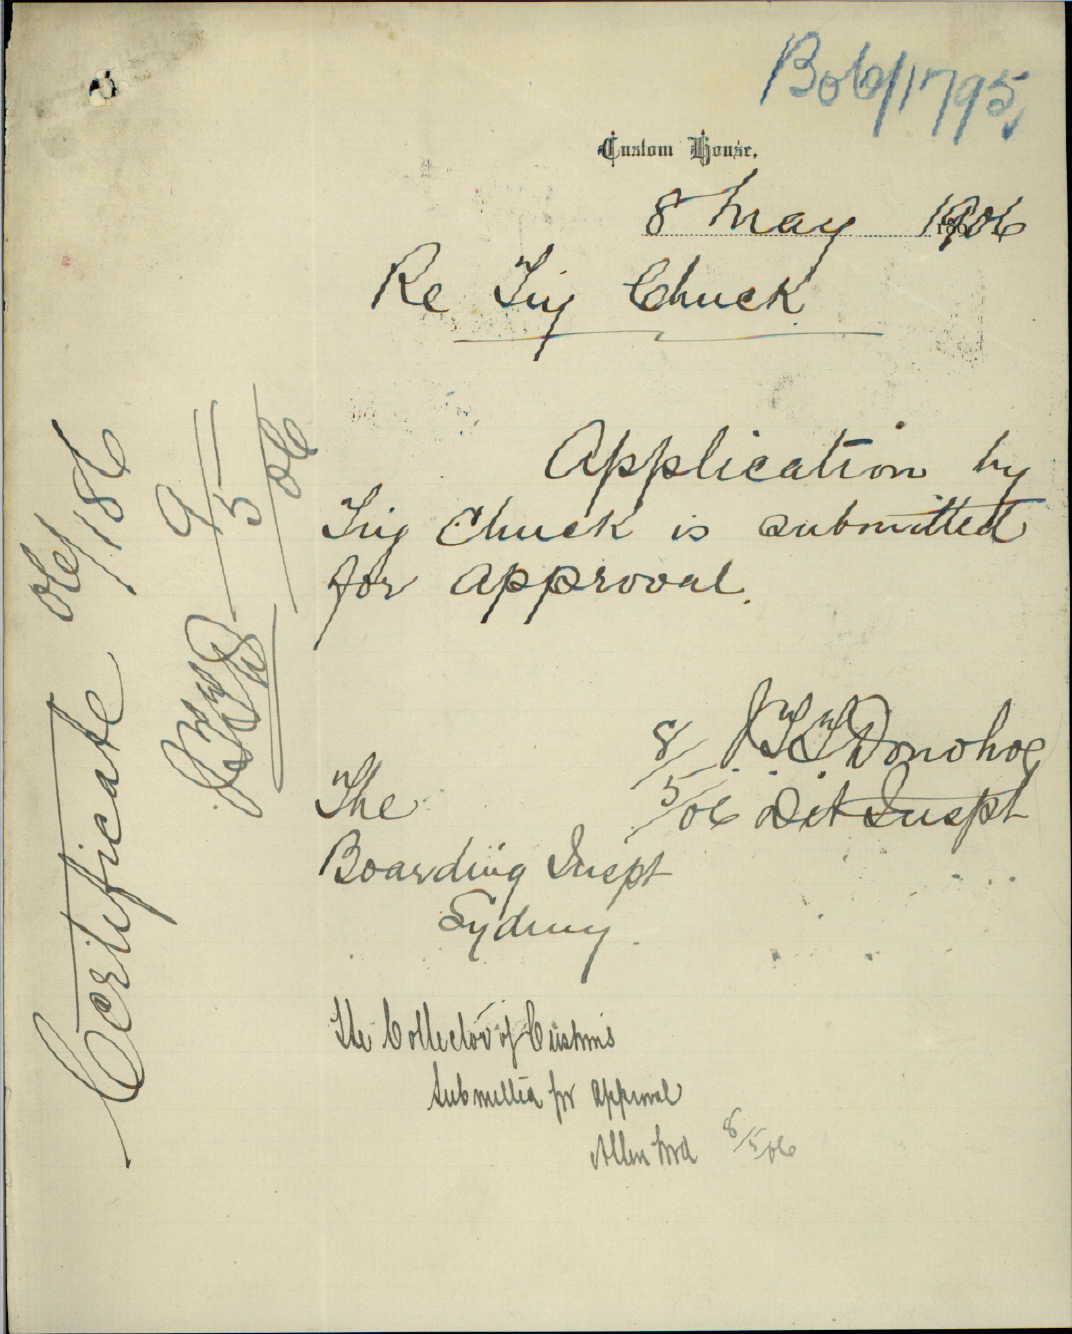 B06/1795
Custom House,
8 May 1906
Re Tiy Chuck
Application by
Tiy Chuck is submitted
for approval.
8/5/06 J T T Donohoe
Det Inspt
The
Boarding Inspt
Sydney
The Collector of Customs
Submitted for approval
8/5/06
Certificate 06/186
9/5/06